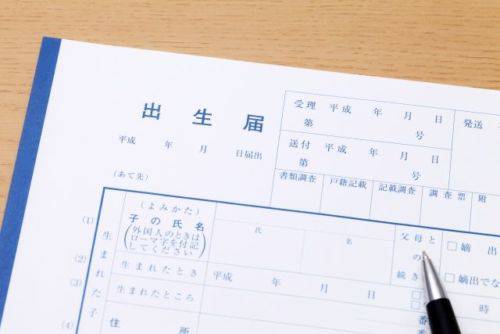 出生届
平成　年　月　日届出
(あて先)
受理　平成　年　月　日
第　　　号
発送
送付　平成　年　月　日
第　　　号
書類調査　戸籍記載　記載調査　調査票　附
(1)
(2)
(3)
(4)
生まれた子
(よみかた)
子の氏名
(外国人のときは
ローマ字を付記
してください)
氏　名
父母と
の
続き
□嫡出
□嫡出でな
生まれたとき　平成　年　月　日
時
生まれたところ
番
住所